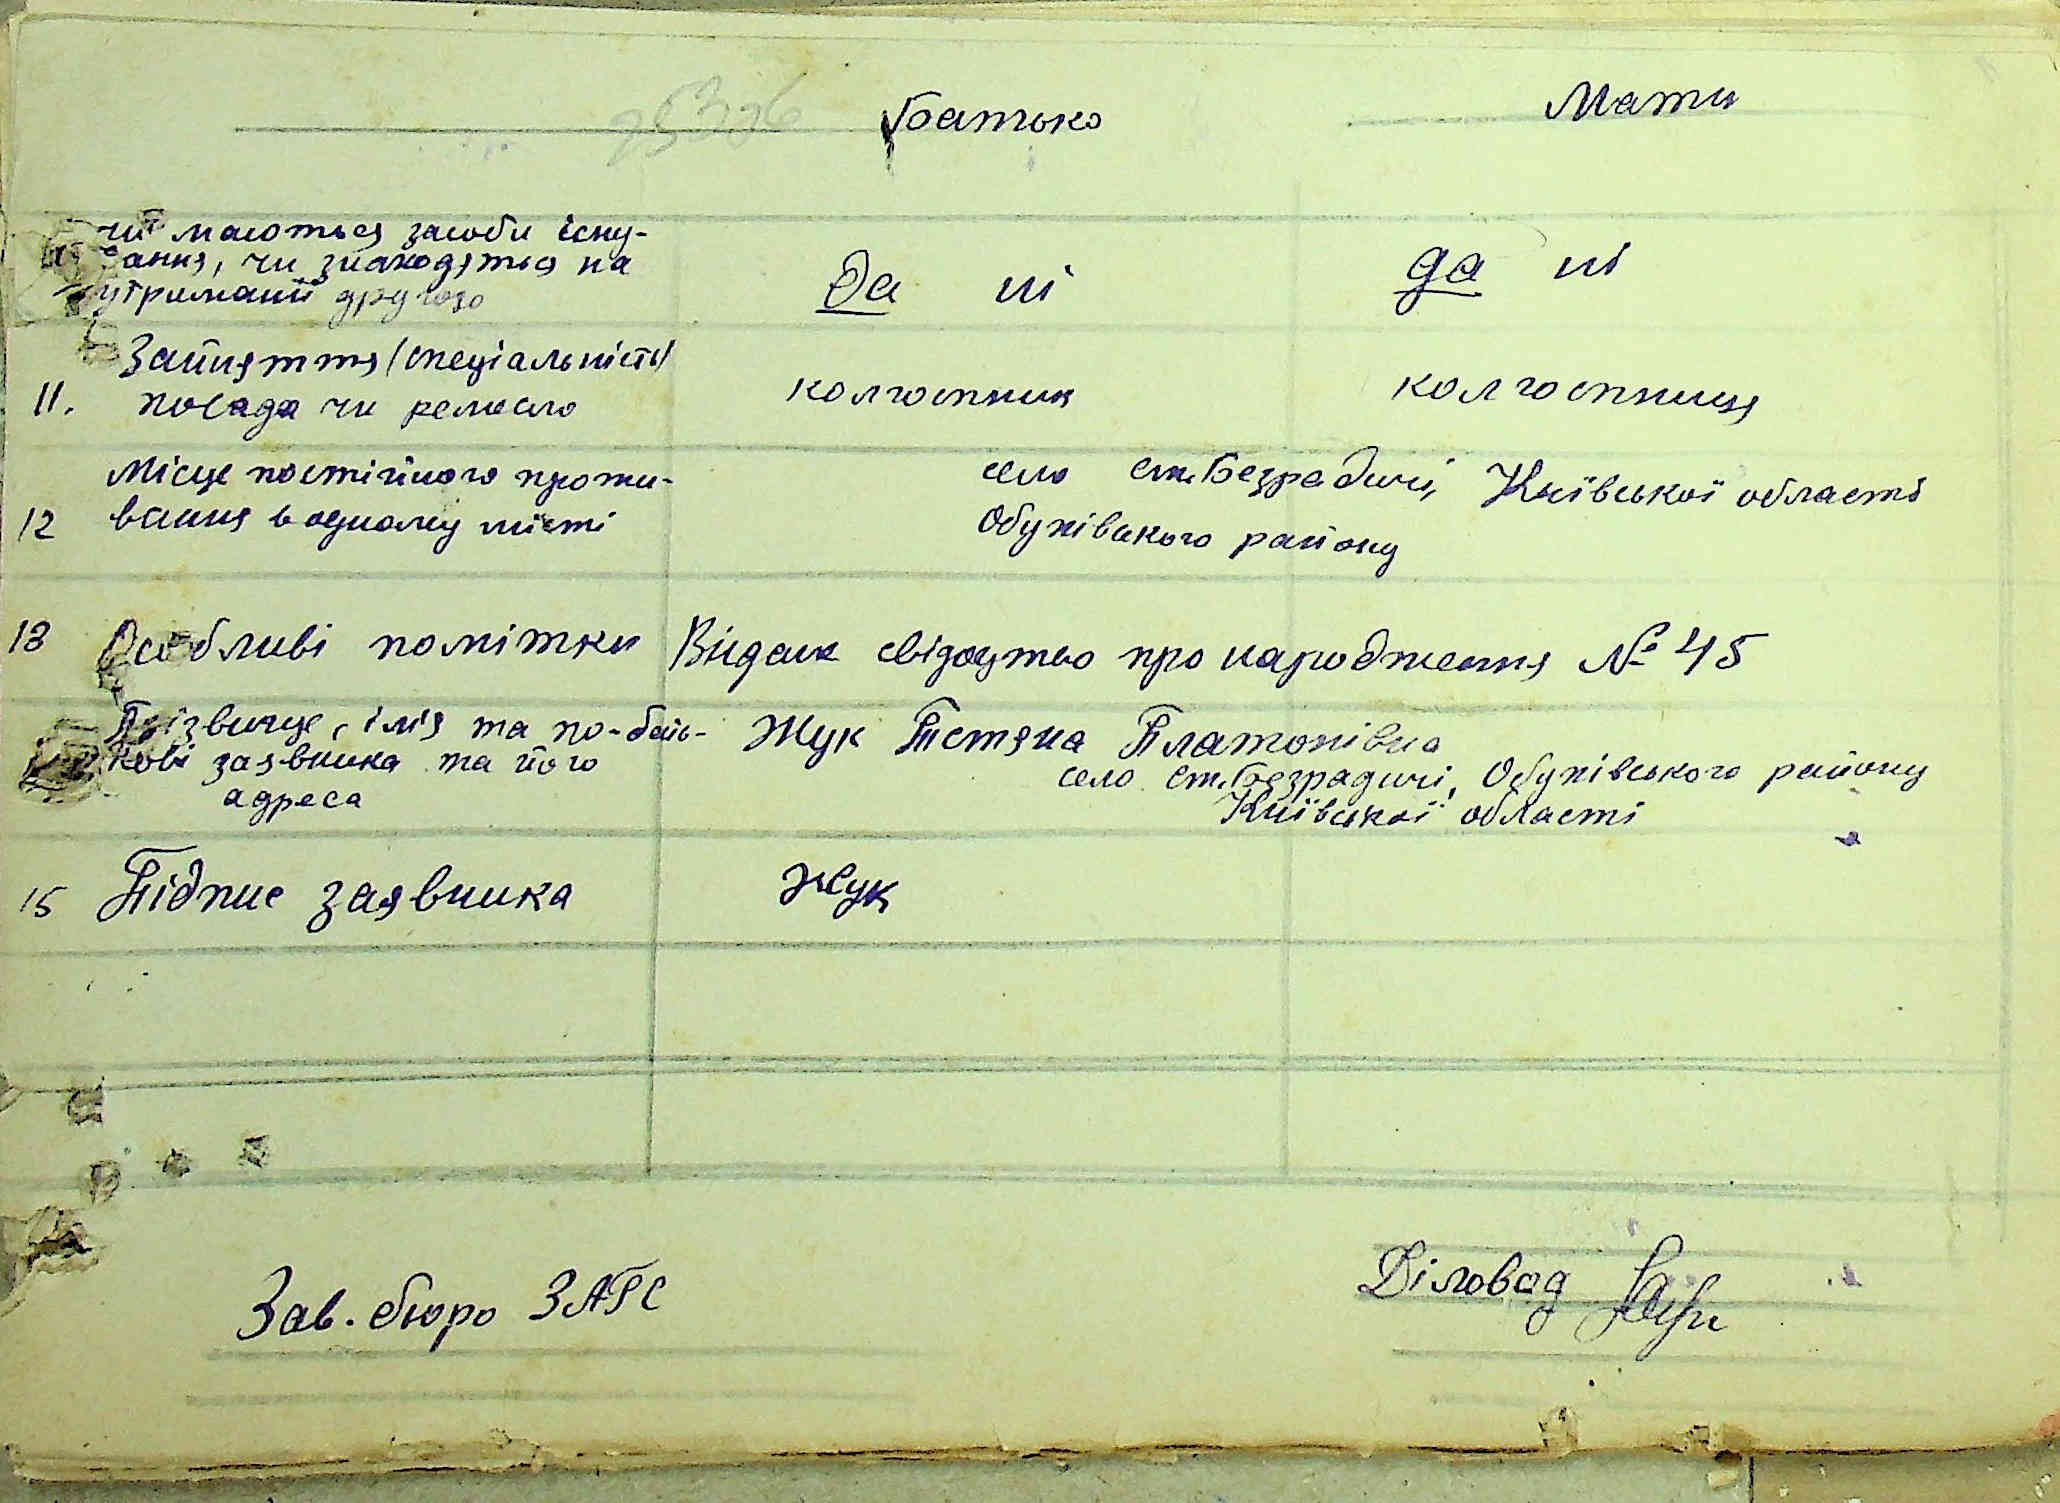 Батько Мати
чи маються засоби існу-
вання, чи знаходяться на
утриманії другого
да ні да ні
Зайняття (спеціальність)
11. посада чи ремесло колгоспник колгоспниця
Місце постійного прожи- село ст. Безрадичі, Київської області
12 вання в одному місті Обухівського району
13 Особливі помітки Видан свідоцтво про народження № 45
Прізвище, імя та по-бать- Жук Тетяна Платонівна
кові заявника та його село ст. Безрадичі, Обухівського району
адреса Київської області
15 Підпис заявника Жук
Зав. бюро ЗАГС Діловод